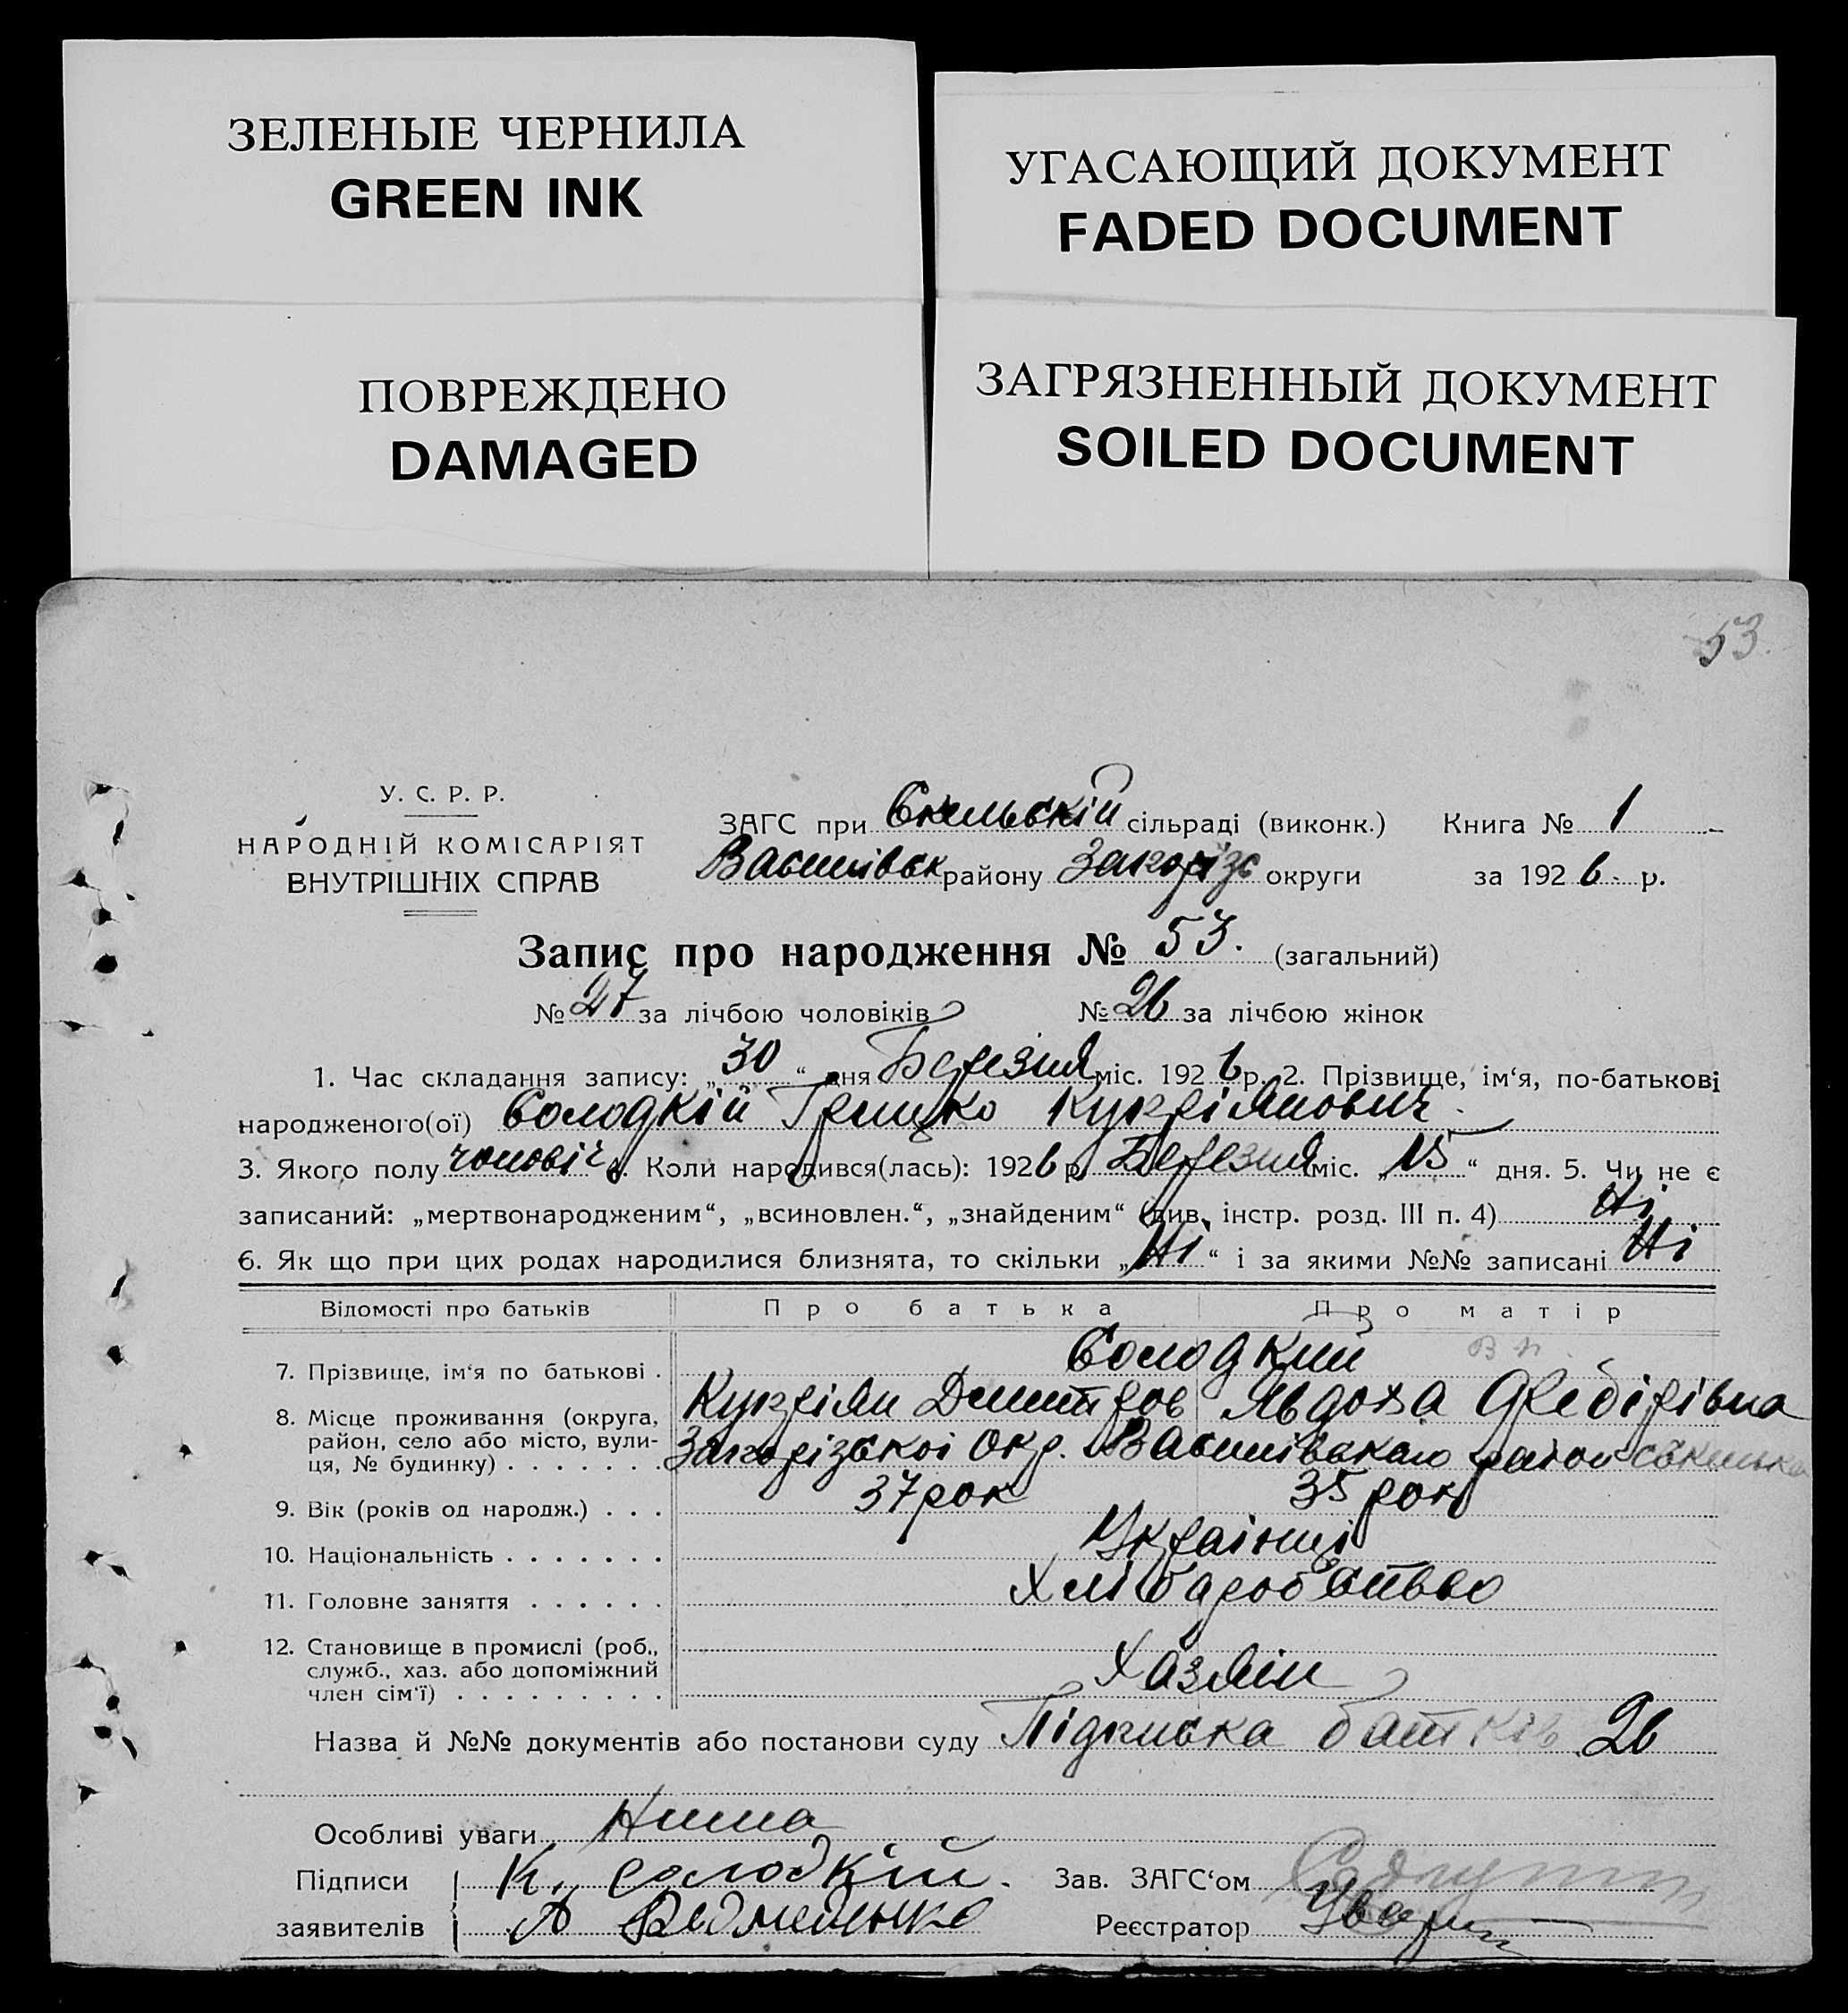 ЗЕЛЕНЫЕ ЧЕРНИЛА
GREEN INK
УГАСАЮЩИЙ ДОКУМЕНТ
FADED DOCUMENT
ПОВРЕЖДЕНО
DAMAGED
ЗАГРЯЗНЕННЫЙ ДОКУМЕНТ
SOILED DOCUMENT
53.
У. С. Р. Р.
НАРОДНІЙ КОМІСАРІЯТ
ВНУТРІШНІХ СПРАВ
ЗАГС при Скельській сільраді (виконк.) Книга № 1
Василівськ району Запорізь округи за 1926 р.
Запис про народження № 53. (загальний)
№ 27 за лічбою чоловіків № 26 за лічбою жінок
1. Час складання запису: „30“ дня Березня міс. 1926 р. 2. Прізвище, ім‘я, по-батькові
народженого(ої) Солодкій Грицко Купріянович
3. Якого полу чоловіч 4. Коли народився(лась): 1926 р. Березня міс. „15“ дня. 5. Чи не є
записаний: „мертвонародженим“, „всиновлен.“, „знайденим“ (див. інстр. розд. III п. 4) Ні
6. Як що при цих родах народилися близнята, то скільки „Ні“ і за якими №№ записані Ні
Відомості про батьків Про батька Про матір
7. Прізвище, ім‘я по батькові . Солодкий
Купріян Дмитров Явдоха
8. Місце проживання (округа,
район, село або місто, вули-
ця, № будинку) . . . . . . . Запорізької Окр. Василівського район
9. Вік (років од народж.) . . . 37 рок 35 рок
10. Національність . . . . . . . Українці
11. Головне заняття . . . . . . Хліборобство
12. Становище в промислі (роб.,
служб., хаз. або допоміжний
член сім‘ї) . . . . . . . . . Хазяін
Назва й №№ документів або постанови суду Підписка батків 26
Особливі уваги Нима
Підписи К. Солодкій. Зав. ЗАГС‘ом
заявителів А Реєстратор